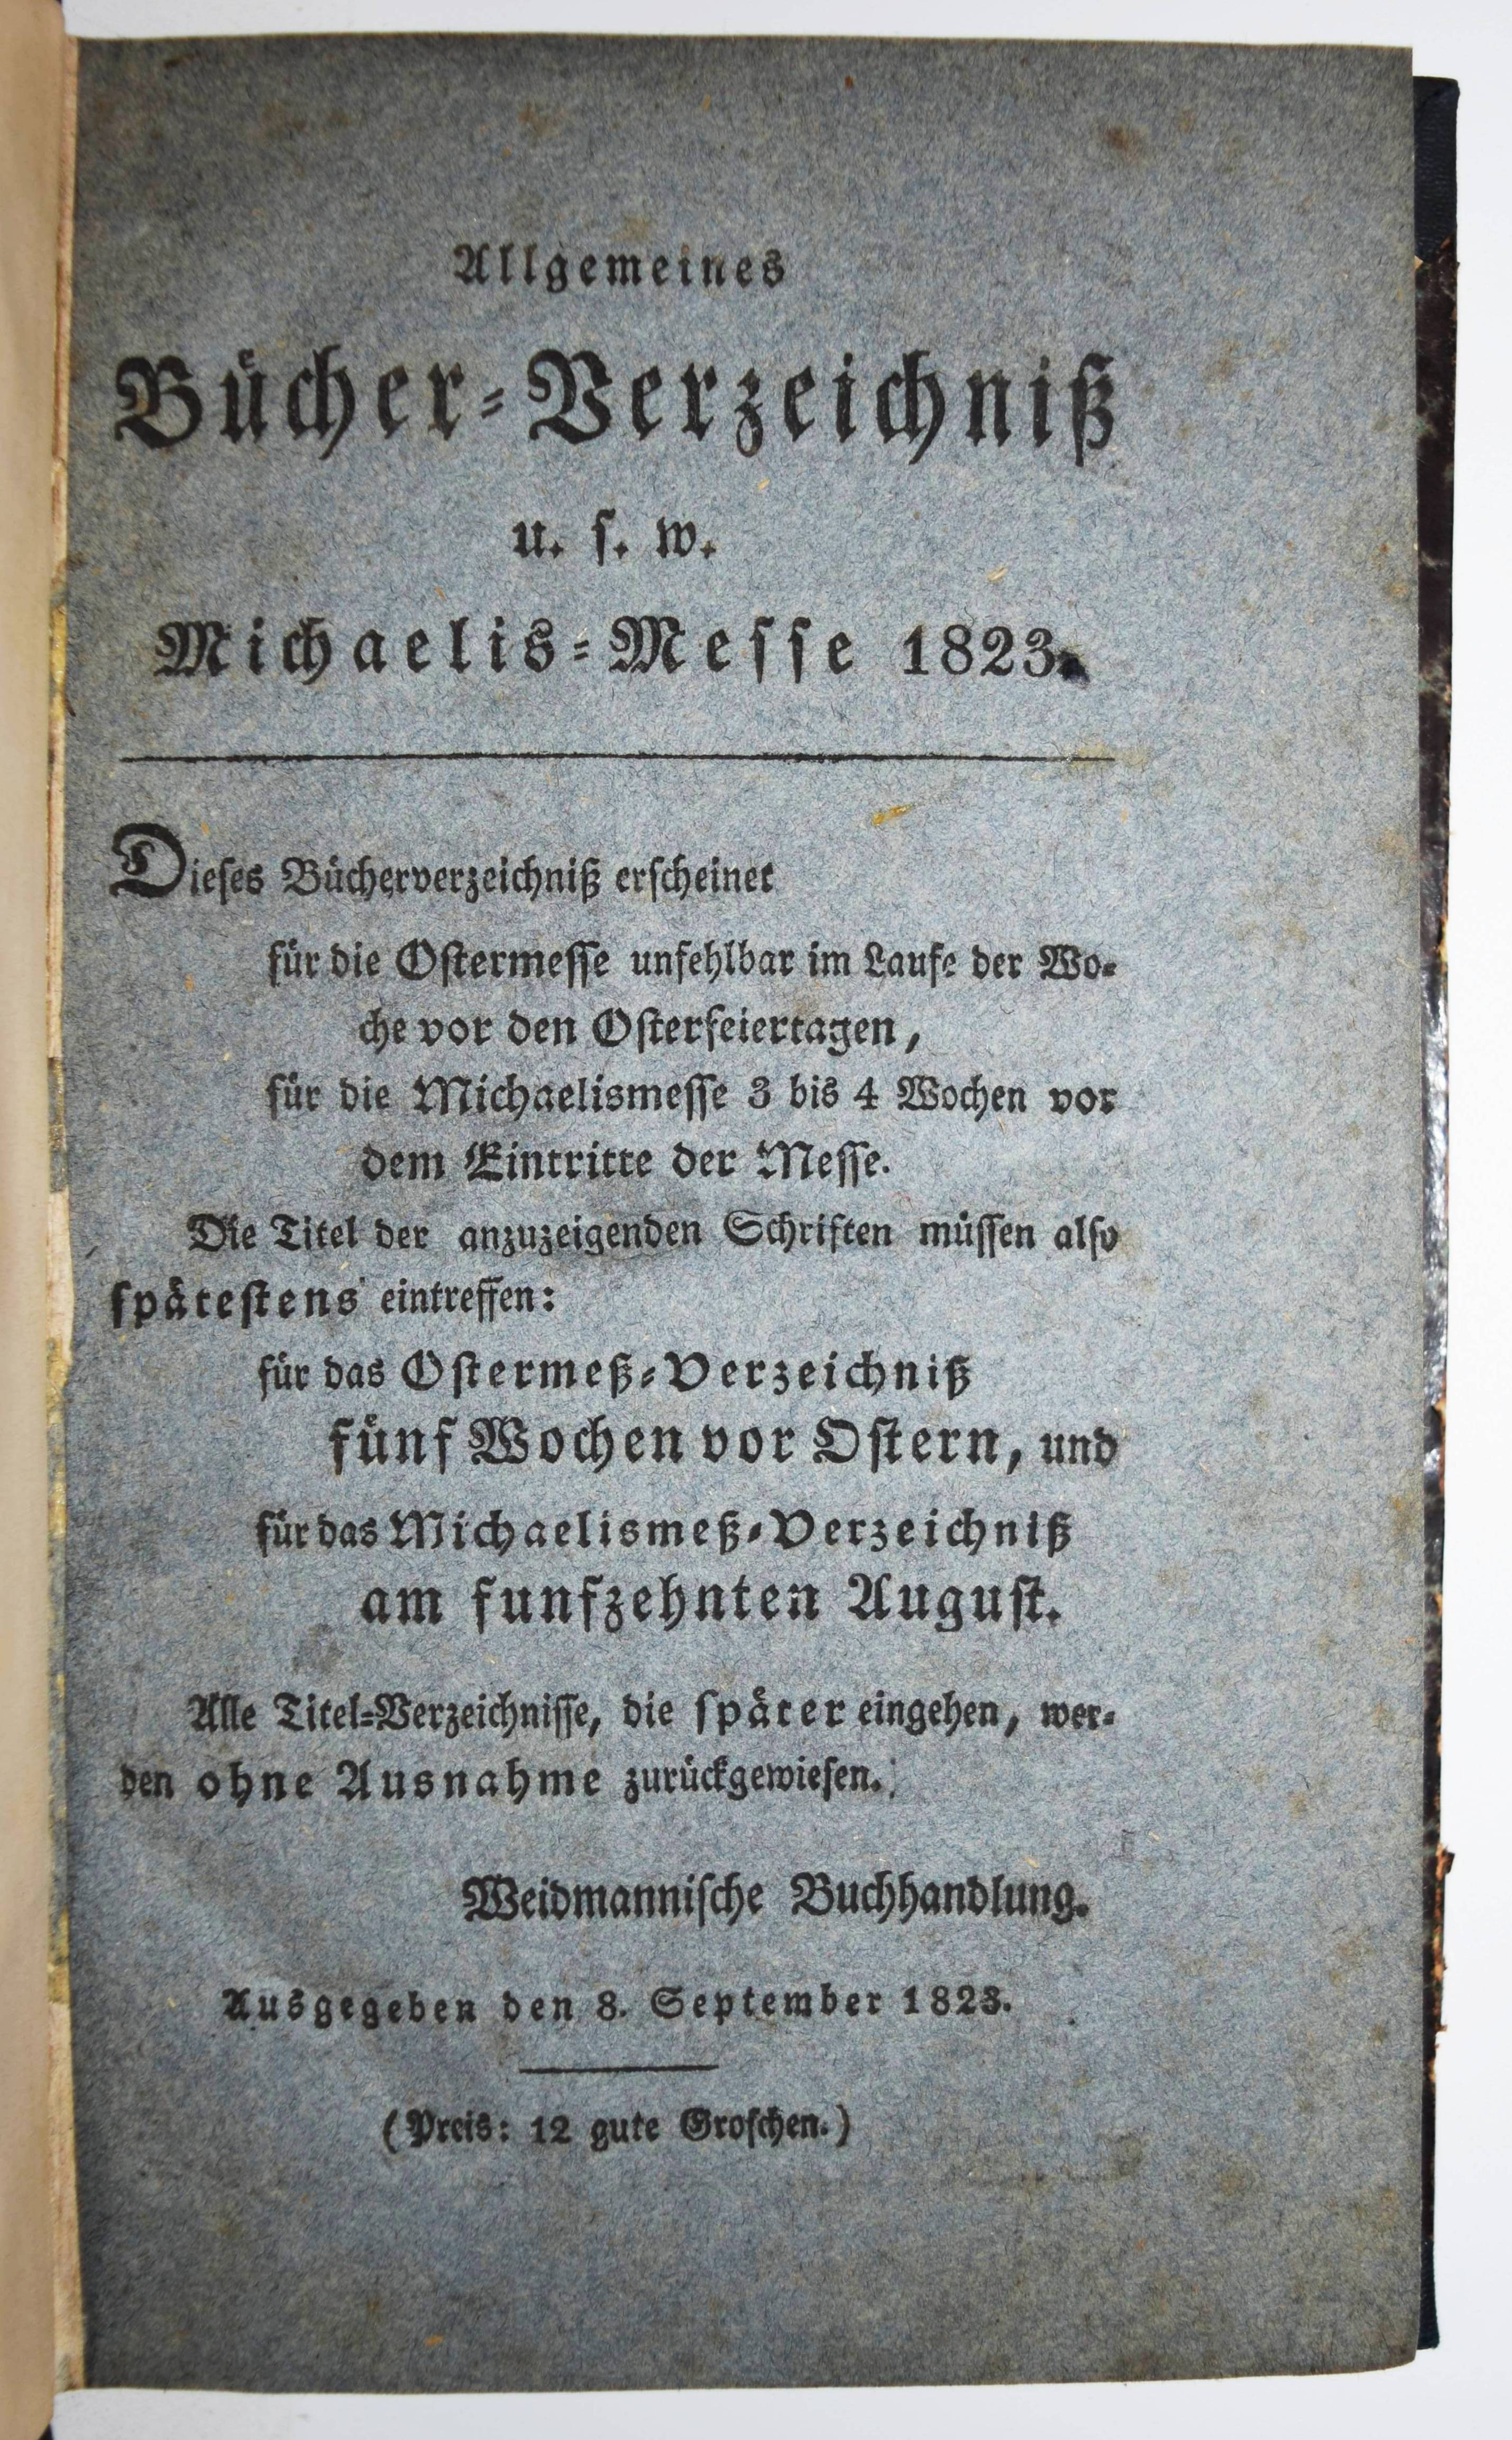 Allgemeines
Bücher-Verzeichniß
u. s. w.
Michaelis-Messe 1823.
Dieses Bücherverzeichniß erscheinet
für die Ostermesse unfehlbar im Laufe der Wo-
che vor den Osterfeiertagen,
für die Michaelismesse 3 bis 4 Wochen vor
dem Eintritte der Messe.
Die Titel der anzuzeigenden Schriften müssen also
spätestens eintreffen:
für das Ostermeß-Verzeichniß
fünf Wochen vor Ostern, und
für das Michaelismeß-Verzeichniß
am funfzehnten August.
Alle Titel-Verzeichnisse, die später eingehen, wer-
den ohne Ausnahme zurückgewiesen.
Weidmannische Buchhandlung.
Ausgegeben den 8. September 1823.
(Preis: 12 gute Groschen.)